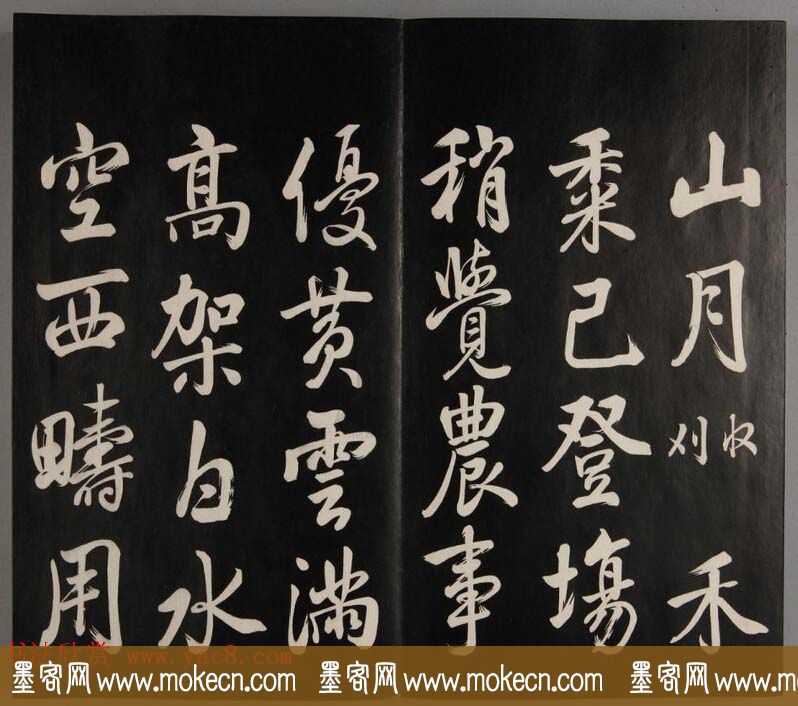 山月收刈禾
黍已登場
稍覺農事
優黄雲滿
高架白水
空西疇用
书法欣赏 www.yac8.com
墨客网 www.mokecn.com 墨客网 www.mokecn.com 墨客网 www.mokecn.com